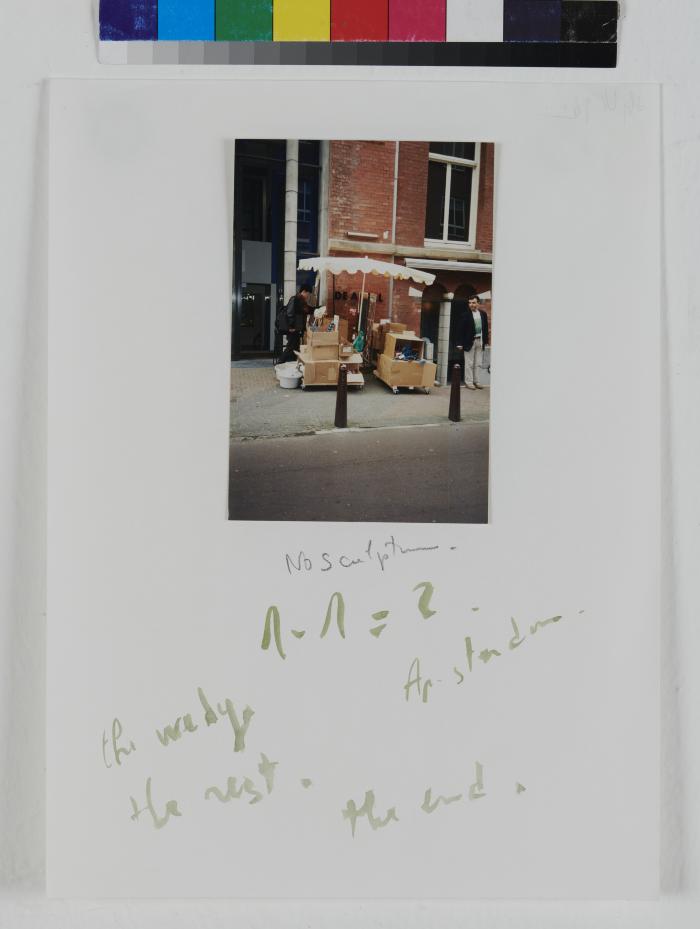 DE A L
No Sculpture.
1 - 1 = 2.
Amsterdam.
the wedge
the rest.
the end.